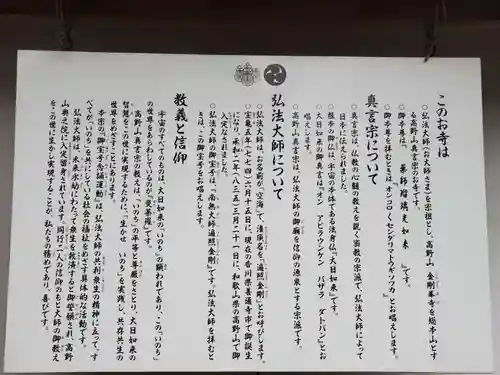 このお寺は
○弘法大師(お大師さま)を宗祖とし、高野山 金剛峯寺を総本山とす
る高野山真言宗のお寺です。
○御本尊は、『薬師瑠璃光如来』です。
○御本尊を拝むときは、『オンコロコロセンダリマトウギソワカ』とお唱えします。
真言宗について
○真言宗は、仏教の心髄の教えを説く密教の宗派で、弘法大師によって
日本に伝えられました。
○根本の御仏は、宇宙の本体である法身仏、『大日如来』です。
○大日如来の御真言は、『オン アビラウンケン バザラ ダトバン』とお
唱えします。
○高野山真言宗は、弘法大師の御廟を信仰の源泉とする宗派です。
弘法大師について
○弘法大師は、お名前が、『空海』で、灌頂名を、『遍照金剛』とお呼びします。
○宝亀五年(七七四)六月十五日に、現在の香川県善通寺市で御誕生
になり、承和二年(八三五)三月二十一日に和歌山県の高野山で御
入定なされました。
○弘法大師の御宝号は、『南無大師遍照金剛』です。弘法大師を拝むと
きは、この御宝号をお唱えします。
教義と信仰
宇宙のすべてのものは、大日如来の、いのちの顕われであり、この、いのち
の世界をあらわしているのが、曼荼羅です。
高野山真言宗の教えは、いのちの平等と尊厳をさとり、大日如来の
智慧をこの世に実現するために、生かせ いのちを実践し、共存共生の
世界をめざすことにあります。
本宗の、御宝号念誦運動は、弘法大師の共利衆生の精神に立って、す
べてが、いのちを共にしている社会の福祉をめざす具体的な活動です。
弘法大師は、未来永劫にわたって衆生を救済すると御誓願され、高野
山奥之院に入定留身されています。同行二人の信仰のもと大師の御教え
を、この世に生かし実現することが、私たちの務めであり、喜びです。